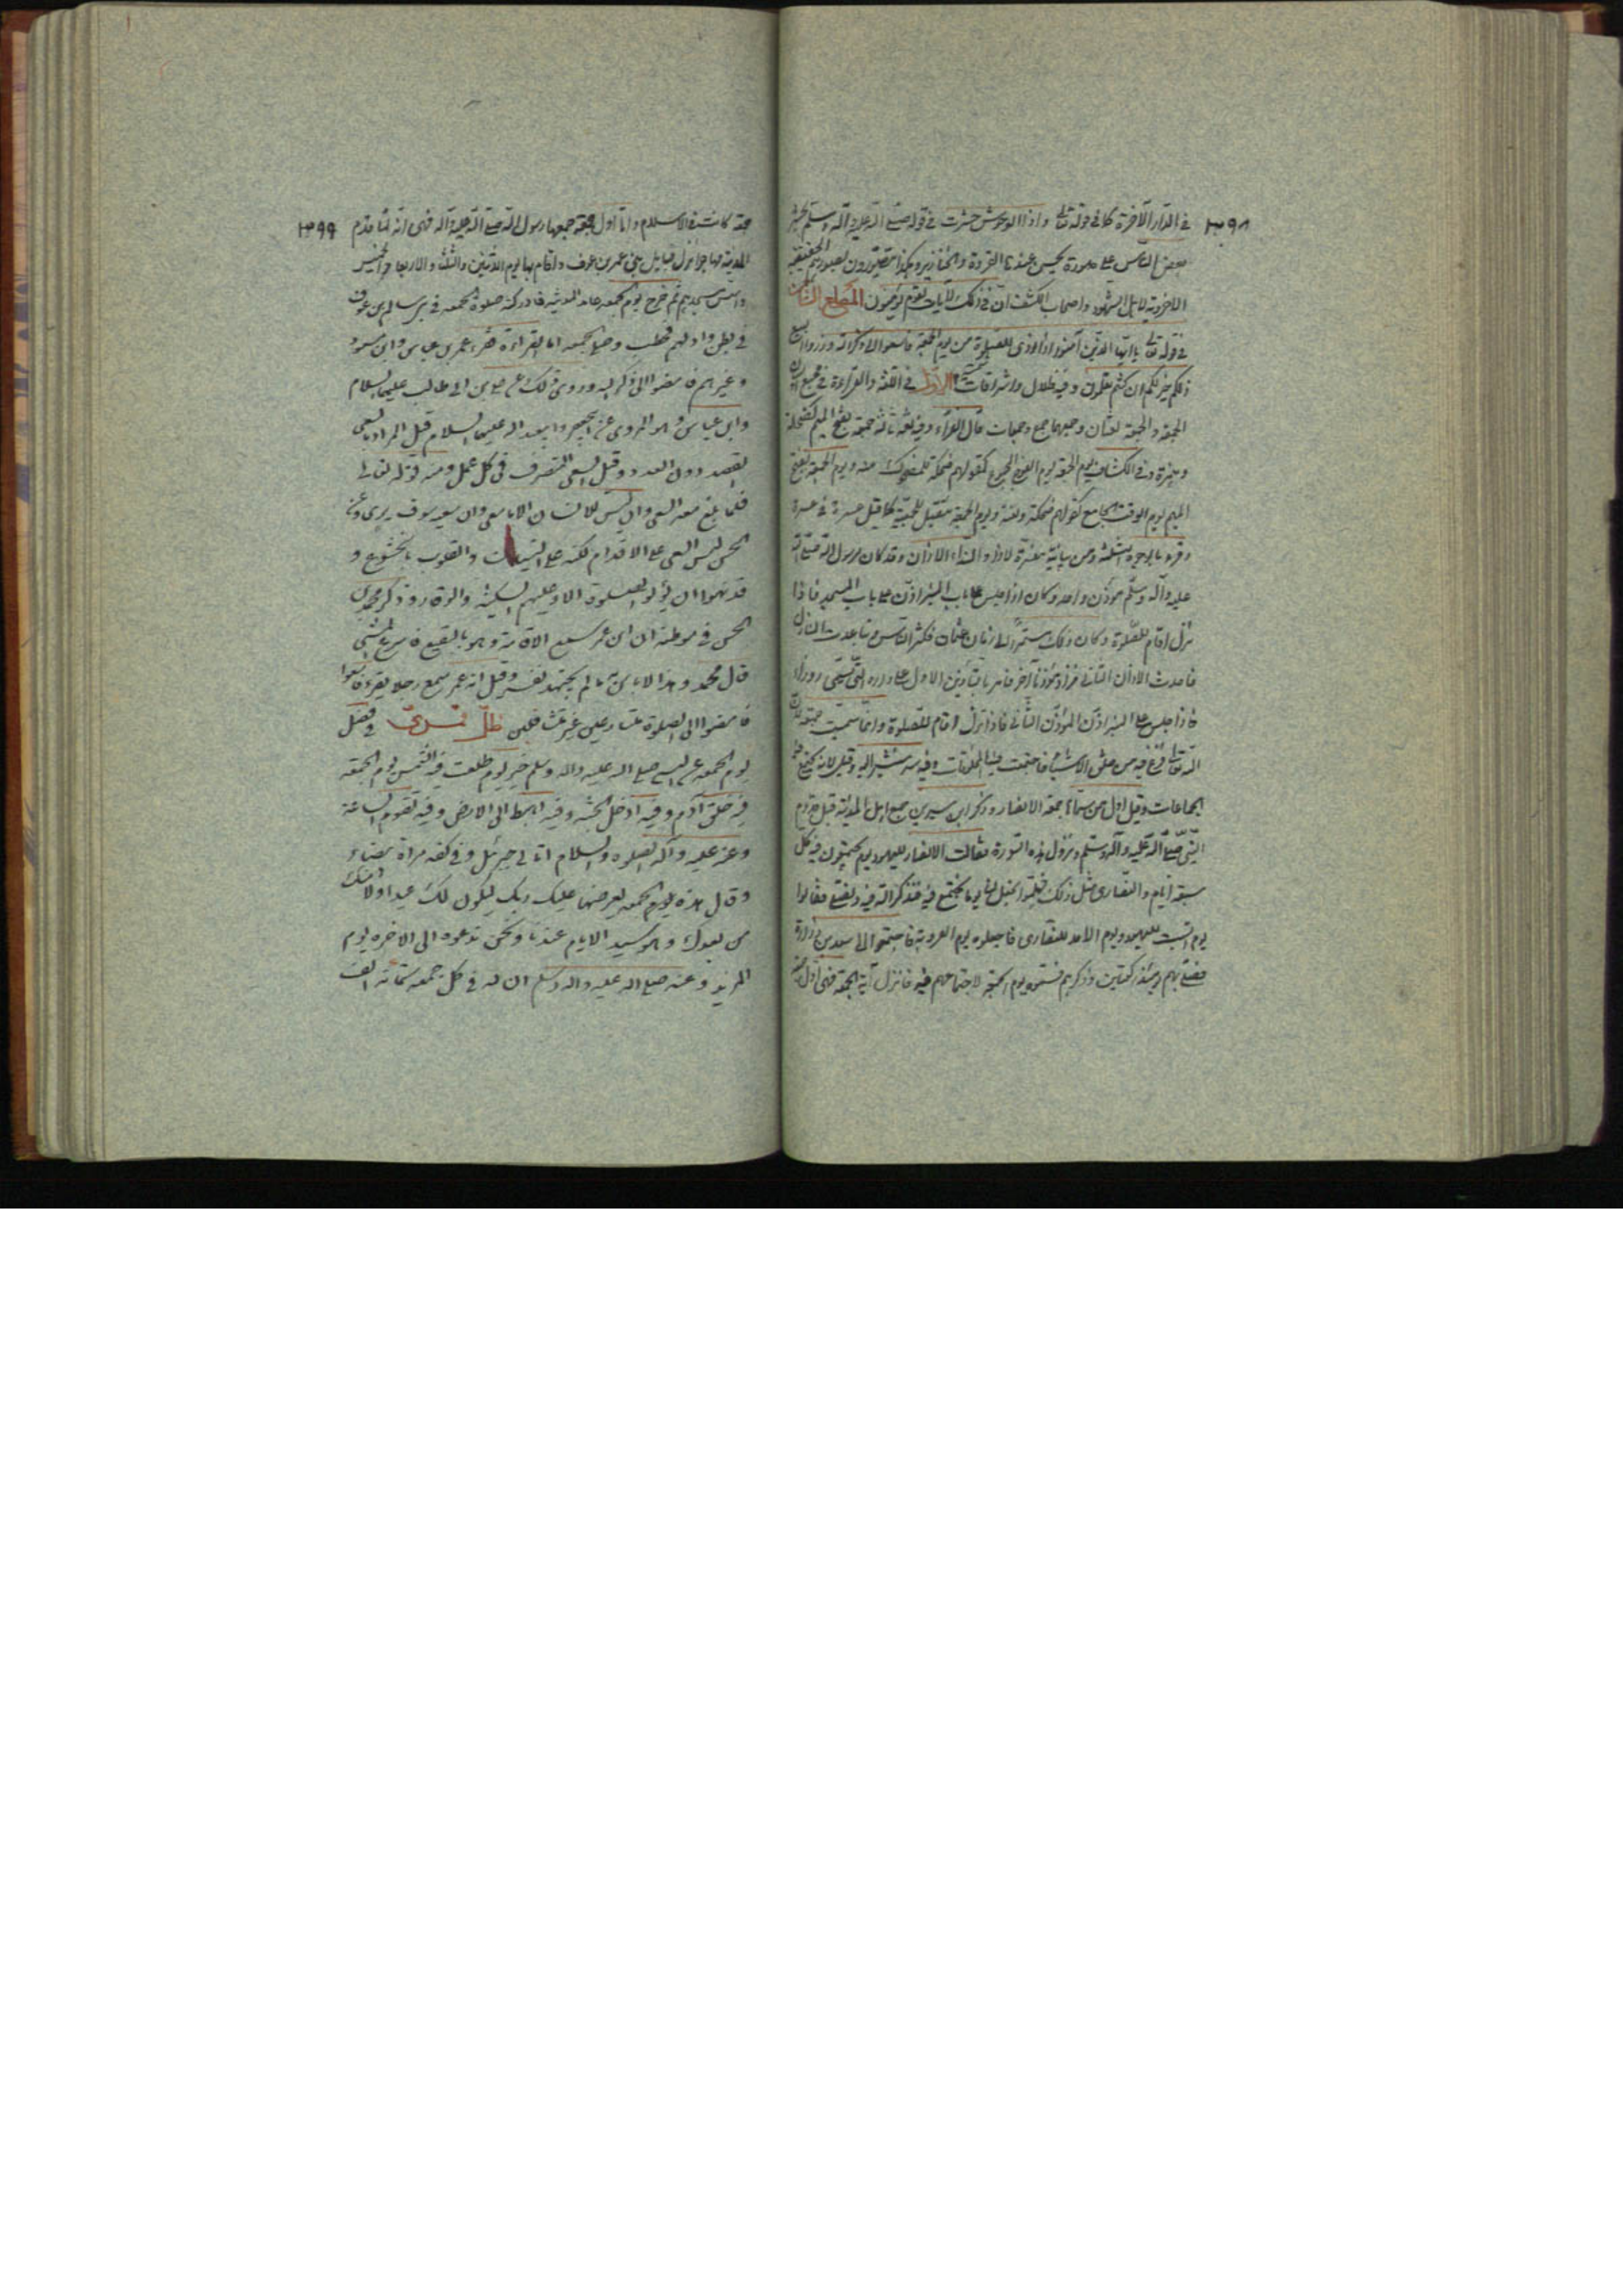 ٣٩٨
في الدار الآخرة كما في قوله تعالى واذا الوحوش حشرت في قوله صلى الله عليه وآله وسلم يحشر
بعض الناس على صورة يحسن عندها القردة والخنازير وهكذا يتصورون بصورهم الحقيقية
الاخروية لاهل الشهود واصحاب الكشف ان في ذلك لآيات لقوم يؤمنون المطلع الثامن
في قوله تعالى يا ايها الذين آمنوا اذا نودي للصلوة من يوم الجمعة فاسعوا الى ذكر الله وذروا البيع
ذلكم خير لكم ان كنتم تعلمون وفيه ظلال واشراقات الاول في اللغة والقراءة في مجمع البيان
الجمعة والجمعة لغتان وجمعهما جمع وجمعات قال الفراء وفيه لغة ثالثة جمعة بفتح الميم كضحكة
وهمزة وفي الكشاف يوم الجمعة يوم الفوج المجموع كقولهم ضحكة للمضحوك منه ويوم الجمعة بفتح
الميم يوم الوقت الجامع كقولهم ضحكة ولعنة ويوم الجمعة تثقيل للجمعة كما قيل عسرة في عسرة
وقرء بالوجوه الثلثة ومن بيانية مفسرة لاذا والنداء الاذان وقد كان لرسول الله صلى الله
عليه وآله وسلم مؤذن واحد وكان اذا جلس على المنبر اذن على باب المسجد فاذا
نزل اقام للصلوة وكان ذلك مستمرا الى زمان عثمان فكثر الناس وتباعدت المنازل
فاحدث الاذان الثاني فزاد مؤذنا آخر فامر بالتأذين الاول على داره التي تسمى زوراء
فاذا جلس على المنبر اذن المؤذن الثاني فاذا نزل اقام للصلوة وانما سميت جمعة لان
الله تعالى فرغ فيه من خلق الاشياء فاجتمعت فيه المخلوقات وفيه سر نشير اليه وقيل لانه تجتمع فيه
الجماعات وقيل اول من سماها جمعة الانصار وذكر ابن سيرين جمع اهل المدينة قبل قدوم
النبي صلى الله عليه وآله وسلم ونزول هذه السورة فقالت الانصار لليهود يوم يجتمعون فيه كل
سبعة ايام والنصارى مثل ذلك فهلموا نجعل لنا يوما نجتمع فيه فنذكر الله فيه ونصلي فقالوا
يوم السبت لليهود ويوم الاحد للنصارى فاجعلوه يوم العروبة فاجتمعوا الى سعد بن زرارة
فصلى بهم يومئذ ركعتين وذكرهم فسموه يوم الجمعة لاجتماعهم فيه فانزل آية الجمعة فهي اول
٣٩٩
جمعة كانت في الاسلام واما اول جمعة جمعها رسول الله صلى الله عليه وآله فهي انه لما قدم
المدينة مهاجرا نزل قبا على بني عمرو بن عوف واقام بها يوم الاثنين والثلثاء والاربعاء والخميس
واسس مسجدهم ثم خرج يوم الجمعة عامد المدينة فادركته صلوة الجمعة في بني سالم بن عوف
في بطن واد لهم فخطب وصلى الجمعة اما القراءة فقرء عمر بن عباس وابن مسعود
وغيرهم فامضوا الى ذكر الله وروى ذلك عن علي بن ابي طالب عليه السلام
وابن عباس وهو المروي عن ابي جعفر وابي عبد الله عليهما السلام قيل المراد بالسعي
القصد دون العدو وقيل السعي التصرف في كل عمل ومنه قوله تعالى
فلما بلغ معه السعي وان ليس للانسان الا ما سعى وان سعيه سوف يرى وعن
الحسن ليس السعي على الاقدام لكنه على النيات والقلوب بالخشوع و
قد نهوا ان يأتوا الصلوة الا وعليهم السكينة والوقار وذكر محمد بن
الحسن في موطئه ان ابن عمر سمع الاقامة وهو بالبقيع فاسرع المشي
قال محمد وهذا لا باس به ما لم يجهد نفسه وقيل انه عمر سمع رجلا يقرء فاسعوا
فامضوا الى الصلوة ظل في فضل
يوم الجمعة عن النبي صلى الله عليه وآله وسلم خير يوم طلعت فيه الشمس يوم الجمعة
فيه خلق آدم وفيه ادخل الجنة وفيه اهبط الى الارض وفيه تقوم الساعة
وعنه عليه وآله الصلوة والسلام اتاني جبرئيل وفي كفه مرآة بيضاء
وقال هذه الجمعة يعرضها عليك ربك ليكون لك عيدا ولامتك
من بعدك وهو سيد الايام عندنا ونحن ندعوه الى الاخرة يوم
المزيد وعنه صلى الله عليه وآله وسلم ان لله في كل جمعة ستمائة الف